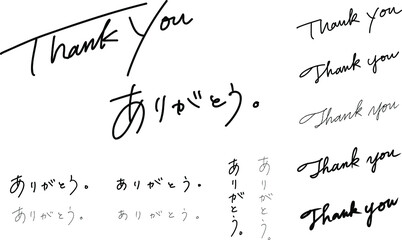 Thank You
ありがとう。
Thank You
Thank you
Thank you
Thank you
Thank you
ありがとう。
ありがとう。
ありがとう。
ありがとう。
ありがとう。
ありがとう。